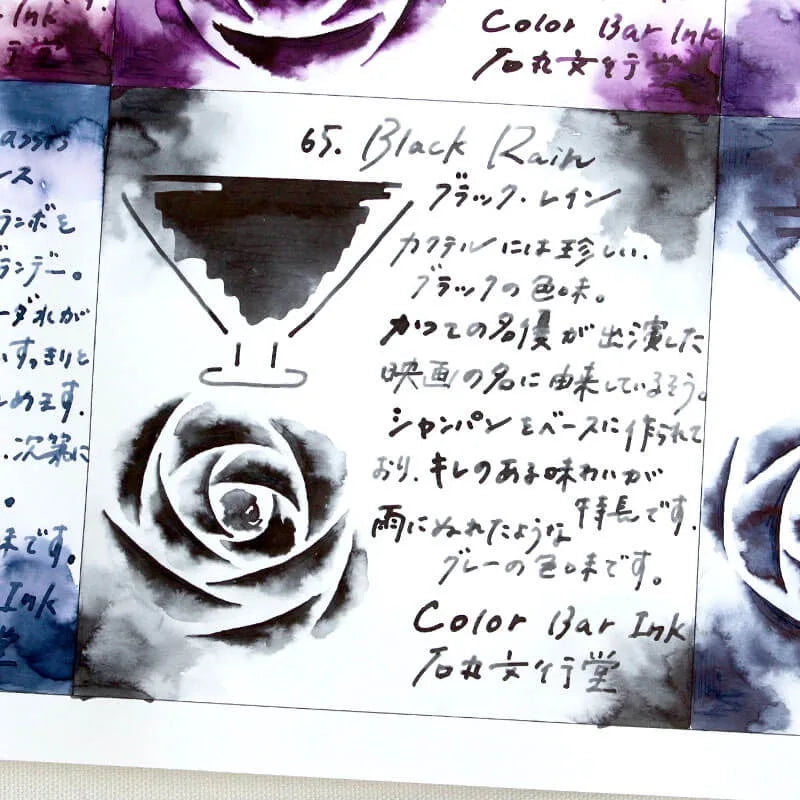 Ink
Color Bar Ink
石丸文行堂
65. Black Rain
ブラック・レイン
カクテルには珍しい、
ブラックの色味。
かつての名優が出演した
映画の名に由来しているそう。
シャンパンをベースに作られて
おり、キレのある味わいが
特長です。
雨にぬれたような
グレーの色味です。
Color Bar Ink
石丸文行堂
assis
ンス
ランボを
ランデー。
ーダ水が
いすっきりと
しめます。
、次第に
。
味です。
Ink
堂